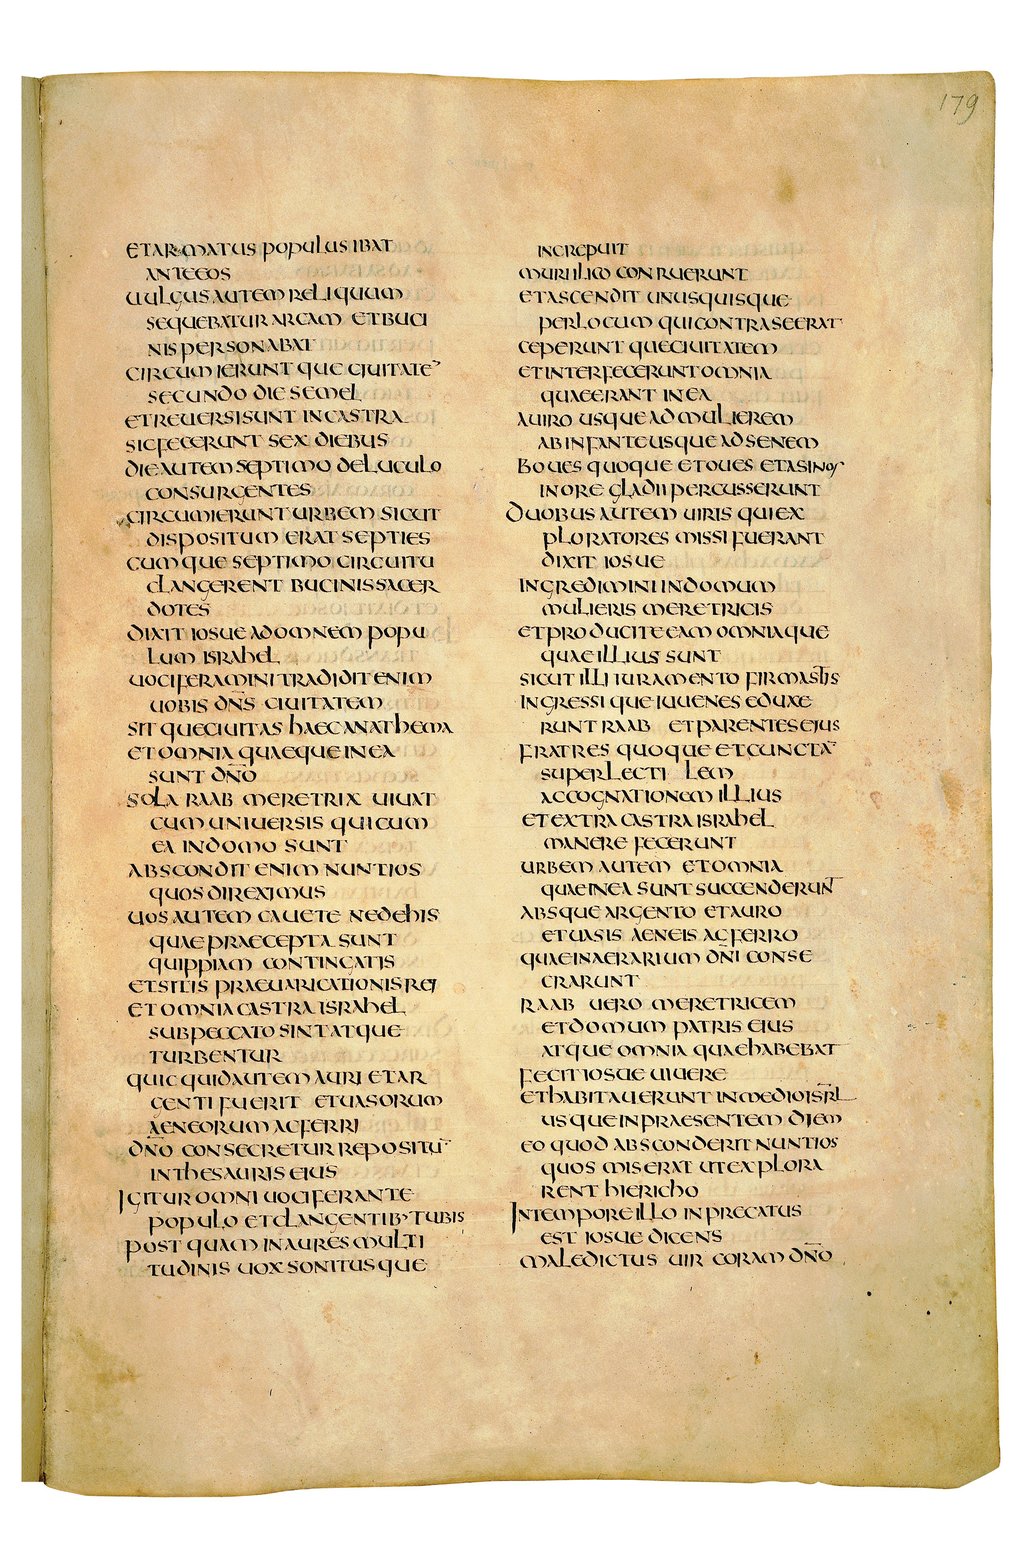 179
ETARMATUS populus IBAT
ANTEEOS
UULGUS AUTEM RELIQUUM
SEQUEBATUR ARCAM ET BUCI
NIS PERSONABAT
CIRCUM IERUNT QUE CIUITATE᾽
SECUNDO DIE SEMEL
ET REUERSI SUNT IN CASTRA
SIC FECERUNT SEX DIEBUS
DIE AUTEM SEPTIMO DELUCULO
CONSURGENTES
CIRCUMIERUNT URBEM SICUT
DISPOSITUM ERAT SEPTIES
CUMQUE SEPTIMO CIRCUITU
CLANGERENT BUCINIS SACER
DOTES
DIXIT IOSUE AD OMNEM POPU
LUM ISRAHEL
UOCIFERAMINI TRADIDIT ENIM
UOBIS DN̄S CIUITATEM
SIT QUE CIUITAS HAEC ANATHEMA
ET OMNIA QUAEQUE IN EA
SUNT DN̄O
SOLA RAAB MERETRIX UIUAT
CUM UNIUERSIS QUI CUM
EA IN DOMO SUNT
ABSCONDIT ENIM NUNTIOS
QUOS DIREXIMUS
UOS AUTEM CAUETE NE DE HIS
QUAE PRAECEPTA SUNT
QUIPPIAM CONTINGATIS
ET SITIS PRAEUARICATIONIS REI
ET OMNIA CASTRA ISRAHEL
SUB PECCATO SINT ATQUE
TURBENTUR
QUICQUID AUTEM AURI ET AR
GENTI FUERIT ET UASORUM
AENEORUM AC FERRI
DN̄O CONSECRETUR REPOSITŪ
IN THESAURIS EIUS
IGITUR OMNI UOCIFERANTE
POPULO ET CLANGENTIB᾽ TUBIS
POSTQUAM IN AURES MULTI
TUDINIS UOX SONITUSQUE
INCREPUIT
MURI ILICO CONRUERUNT
ET ASCENDIT UNUSQUISQUE
PER LOCUM QUI CONTRA SE ERAT
CEPERUNT QUE CIUITATEM
ET INTERFECERUNT OMNIA
QUAE ERANT IN EA
A UIRO USQUE AD MULIEREM
AB INFANTE USQUE AD SENEM
BOUES QUOQUE ET OUES ET ASINOS
IN ORE GLADII PERCUSSERUNT
DUOBUS AUTEM UIRIS QUI EX
PLORATORES MISSI FUERANT
DIXIT IOSUE
INGREDIMINI IN DOMUM
MULIERIS MERETRICIS
ET PRODUCITE EAM OMNIAQUE
QUAE ILLIUS SUNT
SICUT ILLI IURAMENTO FIRMASTIS
INGRESSIQUE IUUENES EDUXE
RUNT RAAB ET PARENTES EIUS
FRATRES QUOQUE ET CUNCTĀ
SUPERLECTI LEM
AC COGNATIONEM ILLIUS
ET EXTRA CASTRA ISRAHEL
MANERE FECERUNT
URBEM AUTEM ET OMNIA
QUAE IN EA SUNT SUCCENDERUNT
ABSQUE ARGENTO ET AURO
ET UASIS AENEIS AC FERRO
QUAE IN AERARIUM DN̄I CONSE
CRARUNT
RAAB UERO MERETRICEM
ET DOMUM PATRIS EIUS
ATQUE OMNIA QUAE HABEBAT
FECIT IOSUE UIUERE
ET HABITAUERUNT IN MEDIO ISR̄L
USQUE IN PRAESENTEM DIEM
EO QUOD ABSCONDERIT NUNTIOS
QUOS MISERAT UT EXPLORA
RENT HIERICHO
IN TEMPORE ILLO INPRECATUS
EST IOSUE DICENS
MALEDICTUS UIR CORAM DN̄O